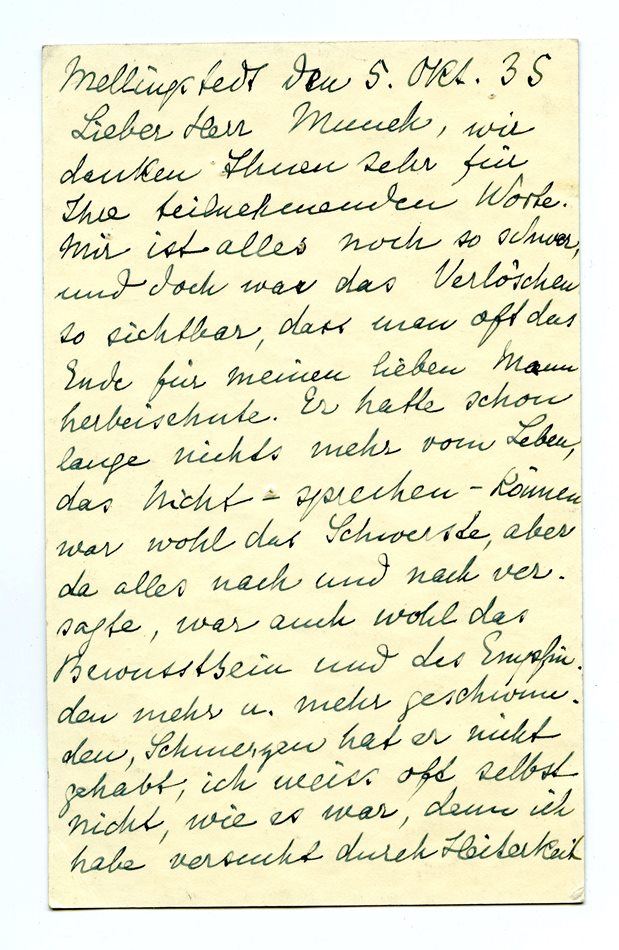 Mellingstedt den 5. Okt. 35
Lieber Herr Munch, wir
danken Ihnen sehr für
Ihre teilnehmenden Worte.
Mir ist alles noch so schwer,
und doch war das Verlöschen
so sichtbar, dass man oft das
Ende für meinen lieben Mann
herbeisehnte. Er hatte schon
lange nichts mehr vom Leben,
das Nicht-sprechen-Können
war wohl das Schwerste, aber
da alles nach und nach ver-
sagte, war auch wohl das
Bewusstsein und des Empfin-
den mehr u. mehr geschwun-
den, Schmerzen hat er nicht
gehabt, ich weiss oft selbst
nicht, wie es war, denn ich
habe versucht durch Heiterkeit